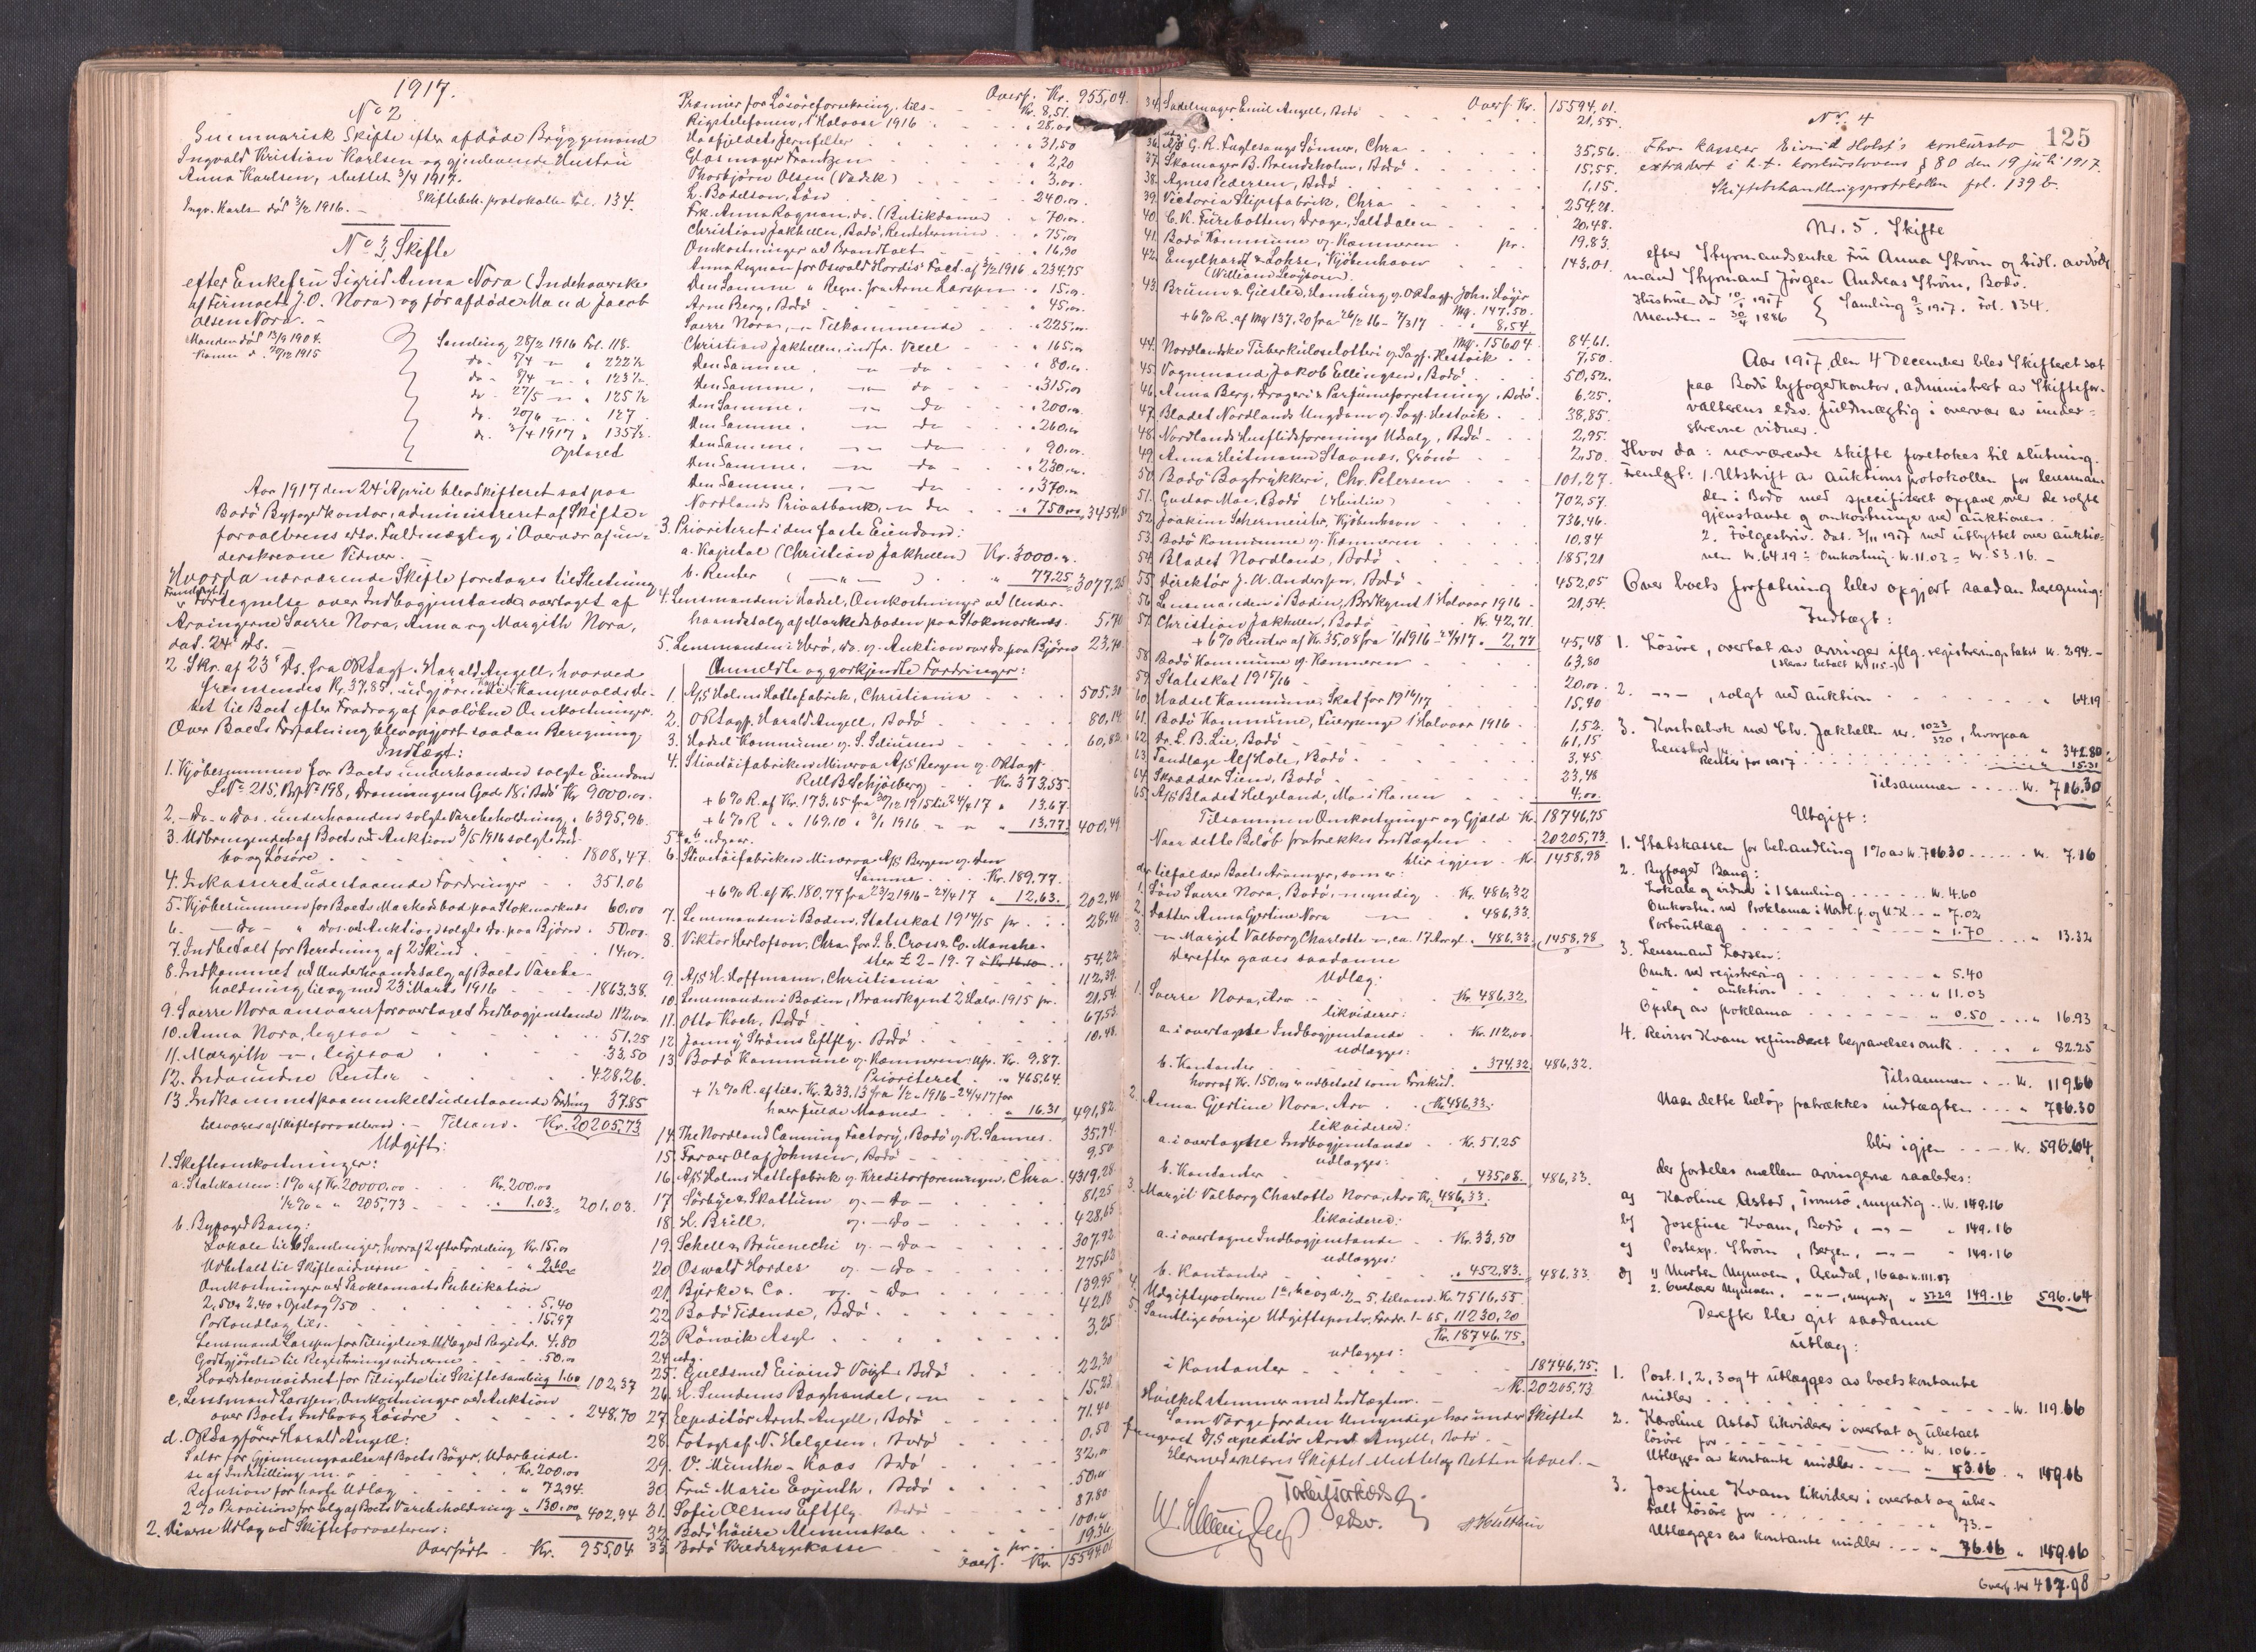 1917.
No 2
Summarisk Skifte efter afdöde Bryggemand
Ingvald Kristian Karlsen og gjenlevende Hustru
Anna Karlsen, sluttet 3/4 1917.
Ingv. Karlsen död 3/2 1916. — Skiftebeh. protokollen Fol. 134.
No 3, Skifte
efter Enkefru Sigrid Anna Nora (Indehaverske
af Firmaet J. O. Nora) og før afdöde Mand Jacob
Olsen Nora. —
Manden död 13/9 1904.
Konen d. 30/12 1915
Samling 28/2 1916 Fol. 118.
do. 5/4 — " 122 1/2
do. 8/4 — " 123 1/2
do. 27/5 — " 125 1/2
do. 20/6 — " 127
do. 3/4 1917 " 135 1/2.
Optaged
Aar 1917 den 24 April blev Skifteret sat paa
Bodö Byfogedkontor, administreret af Skifte-
forvalterens edsv. Fuldmægtig i Overvær af un-
derskrevne Vidner. —
Hvorda nærværende Skifte foretages til Slutning
Fremlagt:
1. Fortegnelse over Indbogjenstande overtaget af
Arvingerne Sverre Nora, Anna og Margith Nora,
dat. 24 ds. —
2. Skr. af 23 ds. fra ORsagf. Harald Angell, hvorved
fremsendes Kr. 37.85, udgjörende
til Boet efter Fradrag af paalöbne Omkostninger.
Over Boets Forfatning blev opgjort saadan Beregning
Indtægt:
1. Kjöbesummen for Boets underhaanden solgte Eiendom
No 215, Bnr No 198, Dronningens Gade 18 i Bodö Kr 9000.00.
2. — do — " do. underhaanden solgte Varebeholdning " 6395,96.
3. Udbringendet af Boets ved Auktion 3/5 1916 solgte Ind-
bo og Lösöre 1808,47.
4. Inkasseret udestaaende Fordringer 351,06
5. Kjöbesummen for Boets Markedsbod paa Stokmarknes 60,00
6. — do — " do. ved Auktion solgte do. paa Björn 50,00.
7. Indbetalt for Beredning af 2 Skind 14,00.
8. Indkommet ved Underhaandssalg af Boets Varebe-
holdning til og med 23 Marts 1916 1863.38.
9. Sverre Nora ansvarer for overtaget Indbogjenstande 112,00
10. Anna Nora, ligesaa 51,25
11. Margith — , ligesaa 33,50
12. Indvundne Renter 428,26.
13. Indkommet paa enkelt udestaaende Fordring 37.85
tilsvares af Skifteforvalteren. — Tilsam. Kr. 20205,73
Udgift:
1. Skifteomkostninger:
a. Statskassen: 1% af Kr. 20000.00 Kr. 200,00
1/2% " " 205,73 " 1.03. 201,03.
b. Byfoged Bang:
Lokale til 6 Samlinger, hvoraf 2 efter Forretning Kr. 15,00
Udbetalt til Skiftevidnerne " 2.60
Omkostninger ved Proklamaets Publikation
2,50 + 2.40 + Opslag 0/50 5,40
Portoudlæg tils. 15,97
Lensmand Larssen for Tilsigelse & Udlæg ved Registr. 4,80
Godtgjörelse til Registreringsvidnerne .50,00
Hovedstevnevidnet for Tilsigelse til Skiftesamling 1.60 102,37
c. Lensmand Larssen, Omkostninger ved Auktion
over Boets Indbo og Lösöre 248,70
d. ORsagförer Harald Angell:
Salær for Gjennemgaaelse af Boets Böger, Udarbeidel-
se af Indstilling m. v. Kr. 200,00
Refusion for havte Udlæg " 72,94.
2 % Provision for Salg af Boets Varebeholdning " 130.00 402,94
2. Diverse Udlæg ved Skifteforvalteren:
Overfört Kr. 955,04
Overf. Kr. 955,04.
Præmier for Lösöreforsikring, tils. Kr. 8,51.
Rigstelefonen, 1 Halvaar 1916 " 28,00
" 31,50
Glasmager Frantzen " 2,20
Thorbjörn Olsen (Vadsk) " 3,00.
L. Bodelson, Lön 240,00
Frk. Anna Rognan, do. (Butikdame) " 70,00.
Christian Jakhelln, Bodö, Renteremin " 75,00
Omkostninger ved Brandtakt " 16,90
Anna Rognan for Oswald Hordes Fact. af 3/12 1916 " 234.75
Den Samme " Regn. fra Arne Larssen " 15,00.
Arne Berg, Bodö " 45,00.
Sverre Nora, — Tilkommende " 225,00.
Christian Jakhelln, indfr. Vexel " 165,00
Den Samme. — do — " 80,00.
Den Samme, — do — " 315,00
Den Samme, — do — " 200,00.
Den Samme. — do — " 260,00
Den Samme, — do — " 90,00.
Den Samme. — do — " 230,00.
Den Samme. — do — " 370,00
Nordlands Privatbank, — do — " 750,00 3454,86
3. Prioriteret i den faste Eiendom:
a. Kapital (Christian Jakhelln) Kr. 3000.00.
b. Renter ( — " — ) " 77.25 3077,25
4. Lensmanden i Hadsel, Omkostninger ved Under-
haandssalg af Markedsboden paa Stokmarknes. 5,70
5. Lensmanden i Herö, do. og Auktion over do. paa Björn 23,40
Anmeldte og godkjendte Fordringer:
1. A/S Holms Hattefabrik, Christiania 505,30
2. ORsagf. Harald Angell, Bodö 80,14
3. Hadsel Kommune v. S. Seiussen 60,82
4. Stivetöifabriken Minerva A/S Bergen v. ORsagf.
Rell B. Schjölberg Kr. 373,55.
+ 6% R. af Kr. 173,65 fra 30/12 1915 til 24/4 17 " 13.67.
+ 6% R. " " 169.10 " 3/1 1916 — " — " 13,77 400,99
5. udgaar.
6. Stivetöifabriken Minerva A/S Bergen v. den
Samme Kr. 189.77.
+ 6% R. af Kr. 180.77 fra 23/2 1916 - 24/4 17 " 12,63. 202,40
7. Lensmanden i Bodin, Statsskat 1914/15 pr. 28,40
8. Viktor Herlofson, Chra. for J. E. Cross & Co. Manche-
ster £ 2 - 19. 7 54,22
9. A/S H. Hoffmann, Christiania 112,39.
10. Lensmanden i Bodin, Brandkgent 2 Halv. 1915 pr. 21,54.
11. Otto Koch, Bodö 67,53
12. Jonny Ströms Eftflg. Bodö 10,48.
13. Bodö Kommune v. Kæmneren: upr. Kr. 9,87.
Prioriteret " 465,64.
+ 1/2% R. af tils. Kr. 233.13 fra 1/2 - 1916 - 24/4 17 for
hver fulde Maaned " 16.31 491,82
14. The Nordland Canning Factory, Bodö v. R. Sannes. 35,74
15. Farver Olaf Johnsen, Bodö 9,50
16. A/S Holms Hattefabrik v. Kreditorforeningen, Chra. 4319,28
17. Sörbye & Skattum v. — do — 81,25
18. H. Brill. v. — do — 428,65
19. Schell & Bruenechi v. — do — 307,92.
20. Oswald Hordes v. — do — 275,63
21. Bjerke & Co. v. — do — 139,95
22. Bodö Tidende, Bodö. 42,18
23. Rönvik Asyl 3,25
24. udg.
25. Guldsmed Eivind Voigt, Bodö 22,30
26. H. Sundems Boghandel, — 15,23
27. Expeditör Arnt Angell, Bodö 71.40
28. Fotograf N. Helgesen, Bodö 0.50
29. V. Münthe-Kaas Bodö 32,00
30. Fru Marie Evjenth, Bodö 50,00
31. Sofie Olsens Eftflg. Bodö 87.80
32. Bodö höiere Almenskole 100,00
33. Bodö Kredssygekasse pr. 19,36
Overf. Kr. 15594.01
Overf. Kr. 15594,01.
34. Sadelmager Emil Angell, Bodö 21,55.
36. A/S G. R. Fuglesangs Sönner, Chra 35,56.
37. Skomager B. Brendeholm, Bodö 15,55.
38. Agnes Pedersen, Bodö 1,15.
39. Victoria Slipsfabrik, Chra 254,21.
40. C. K. Furebotten, Drage, Saltdalen 20,48.
41. Bodö Kommune v. Kæmneren pr. 19.83.
42. Engelhardt & Lohse, Kjöbenhavn 143,01.
(William Levysen).
43. Bruun & Giesled, Hamburg, v. ORsagf. John. Höyer
Mg. 147.50.
+ 6% R. af Mg 137,20 fra 26/2 16 - 7/3 17 " 8,54
Mg. 156.04. 84.61.
44. Nordlandske Tuberkuloselotteri v. Sagf. Hestvik 7,50.
45. Vognmand Jakob Ellingsen, Bodö 50,52.
46. Anna Berg, Drogeri & Parfumeforretning, Bodö. 6.25.
47. Bladet Nordlands Ungdom v. Sagf. Hestvik 38,85.
48. Nordlands Husflidsforenings Udsalg, Bodö 2,95.
49. Anna Heitmann Stavnes, Grönö 2,50.
50. Bodö Bogtrykkeri, Chr. Petersen 101,27.
51. Gustav Moe, Bodö 702,57.
52. Joakim Schermeister, Kjöbenhavn 736,46.
53. Bodö Kommune v. Kæmneren 10,84
54. Bladet Nordland, Bodö 185,21
55. Direktör J. A. Anderssen, Bodö 452,05
56. Lensmanden i Bodin, Brdkgent 1 Halvaar 1916 21,54.
57. Christian Jakhelln, Bodö Kr. 42,71.
+ 6% Renter af Kr. 35,08 fra 1/1 1916 - 24/4 17 " 2,77 45,48
58. Bodö Kommune v. Kæmneren 63,80
59. Statsskat 1915/16 20,00.
60. Hadsel Kommune, Skat for 1916/17 15,40
61. Bodö Kommune, Feierpenge 1 Halvaar 1916 1,52.
62. Dr. L. B. Lie, Bodö 61,15
63. Tandlæge Alf Hole, Bodö 3,45
64. Skrædder Siem, Bodö 23,48
65. A/S Bladet Helgeland, Mo i Ranen 4,00.
Tilsammen Omkostninger og Gjæld Kr. 18746,75
Naar dette Belöb fratrækkes Indtægten 20205,73.
blir igjen Kr. 1458,98
der tilfalder Boets Arvinger, som er:
1. Sön Sverre Nora, Bodö, myndig Kr. 486,32
2. Datter Anna Gjertine Nora — " 486,33.
3. — Margit Valborg Charlotte —, ca. 17 Aar gl. " 486,33 1458,98
Derefter gaves saadanne
Udlæg:
1. Sverre Nora, Arv Kr. 486,32.
likviderer:
a. i overtagne Indbogjenstande Kr. 112,00.
udlægges:
b. Kontanter " 374,32 486,32.
hvoraf Kr. 150,00 er udbetalt som Forskud.
2. Anna Gjertine Nora, Arv Kr. 486,33.
likviderer:
a. i overtagne Indbogjenstande Kr. 51,25
udlægges:
b. Kontanter " 435,08. 486,33.
3. Margit Valborg Charlotte Nora, Arv Kr. 486,33.
likviderer:
a. i overtagne Indbogjenstande Kr. 33,50
udlægges:
b. Kontanter " 452,83. 486,33.
4. Udgiftsposterne 1 a, b, c og d. 2 - 5, tilsam. Kr. 7516,55.
5. Samtlige övrige Udgiftsposter, Fordr. 1-65, " 11230,20
Kr. 18746.75.
udlægges:
i Kontanter 18746,75.
Kr. 20205,73
Hvilket stemmer med Indtægten. —
Som Værge for den Umyndige har under Skiftet
fungeret D/S expeditör Arnt Angell, Bodö. —
Hermed erklæres Skiftet sluttet og Retten hævet. —
edsv.
125
Nr. 4
Fhv. kasserer Eivind Holst's konkursbo
extradert i h. t. konkurslovens § 80 den 19 juli 1917.
Skiftebehandlingsprotokollen fol. 139 b.
Nr. 5. Skifte
efter Styrmandsenke Fru Anna Ström og tidl. avdöde
mand Styrmand Jörgen Andreas Ström, Bodö.
Hustruen död 10/1 1917
Manden " 30/4 1886
Samling 2/3 1917. Fol. 134.
Aar 1917 den 4 December blev Skifteret sat
paa Bodö byfogedkontor, administrert av Skiftefor-
valterens edsv. fuldmægtig i overvær av under-
skrevne vidner.
Hvor da: nærværende skifte foretokes til slutning.
Fremlagt: 1. Utskrift av auktionsprotokollen for lensman-
den i Bodö med specifisert opgave over de solgte
gjenstande og omkostninger ved auktionen.
2. Fölgeskriv. dat. 3/11 1917 med utbyttet av auktio-
nen kr. 64.19 ÷ Omkostn. kr. 11.03 = kr. 53.16. —
Over boets forfatning blev opgjort saadan beregning:
Indtægt:
1. Lösöre, overtat av arvinger iflg. registreringstakst kr. 294.—
(derav betalt kr 115.-)
2. —"— , solgt ved auktion " 64.19
3. Kontrabok med Chr. Jakhelln nr. 1023/320, hvorpaa
henstod pr. " 342.80
Renter for 1917 " 15.31
Tilsammen kr. 716.30
Utgift:
1. Statskassen for behandling 1% av kr. 716.30 kr. 7.16
2. Byfoged Bang:
Lokale og vidner i 1 samling kr. 4.60
Omkostn. ved Proklama i Nordl. p. og N. K. " 7.02
Portoutlæg " 1.70 " 13.32
3. Lensmand Larsen:
Omk. ved registrering " 5.40
" " auktion " 11.03
Opslag av proklama " 0.50 " 16.93
4. Reviser Kvam refunderet begravelsesomk. " 82.25
Tilsammen kr. 119.66
Naar dette belöp fratrækkes indtægten " 716.30
blir igjen kr. 596.64
der fordeles mellem arvingerne saaledes:
a) Karoline Astad, Tromsö, myndig kr. 149.16
b) Josefine Kvam, Bodö, —"— " 149.16
c) Postexp. Ström, Bergen, —"— " 149.16
d) 1) Morten Nymoen, Arendal, 16 aar kr. 111.87
2. Gunvor Nymoen, —"—, myndig " 37.29 149.16 596.64
Derefter blev gjort saadanne
utlæg:
1. Post. 1, 2, 3 og 4 utlægges av boets kontante
midler kr. 119.66
2. Karoline Astad likviderer i overtat og ubetalt
lösöre for kr. 106.—
Utlægges av kontante midler " 43.16 " 149.16
3. Josefine Kvam likviderer i overtat og ube-
talt lösöre for " 73.—
Utlægges av kontante midler " 76.16 " 149.16
Overf. kr 417.98